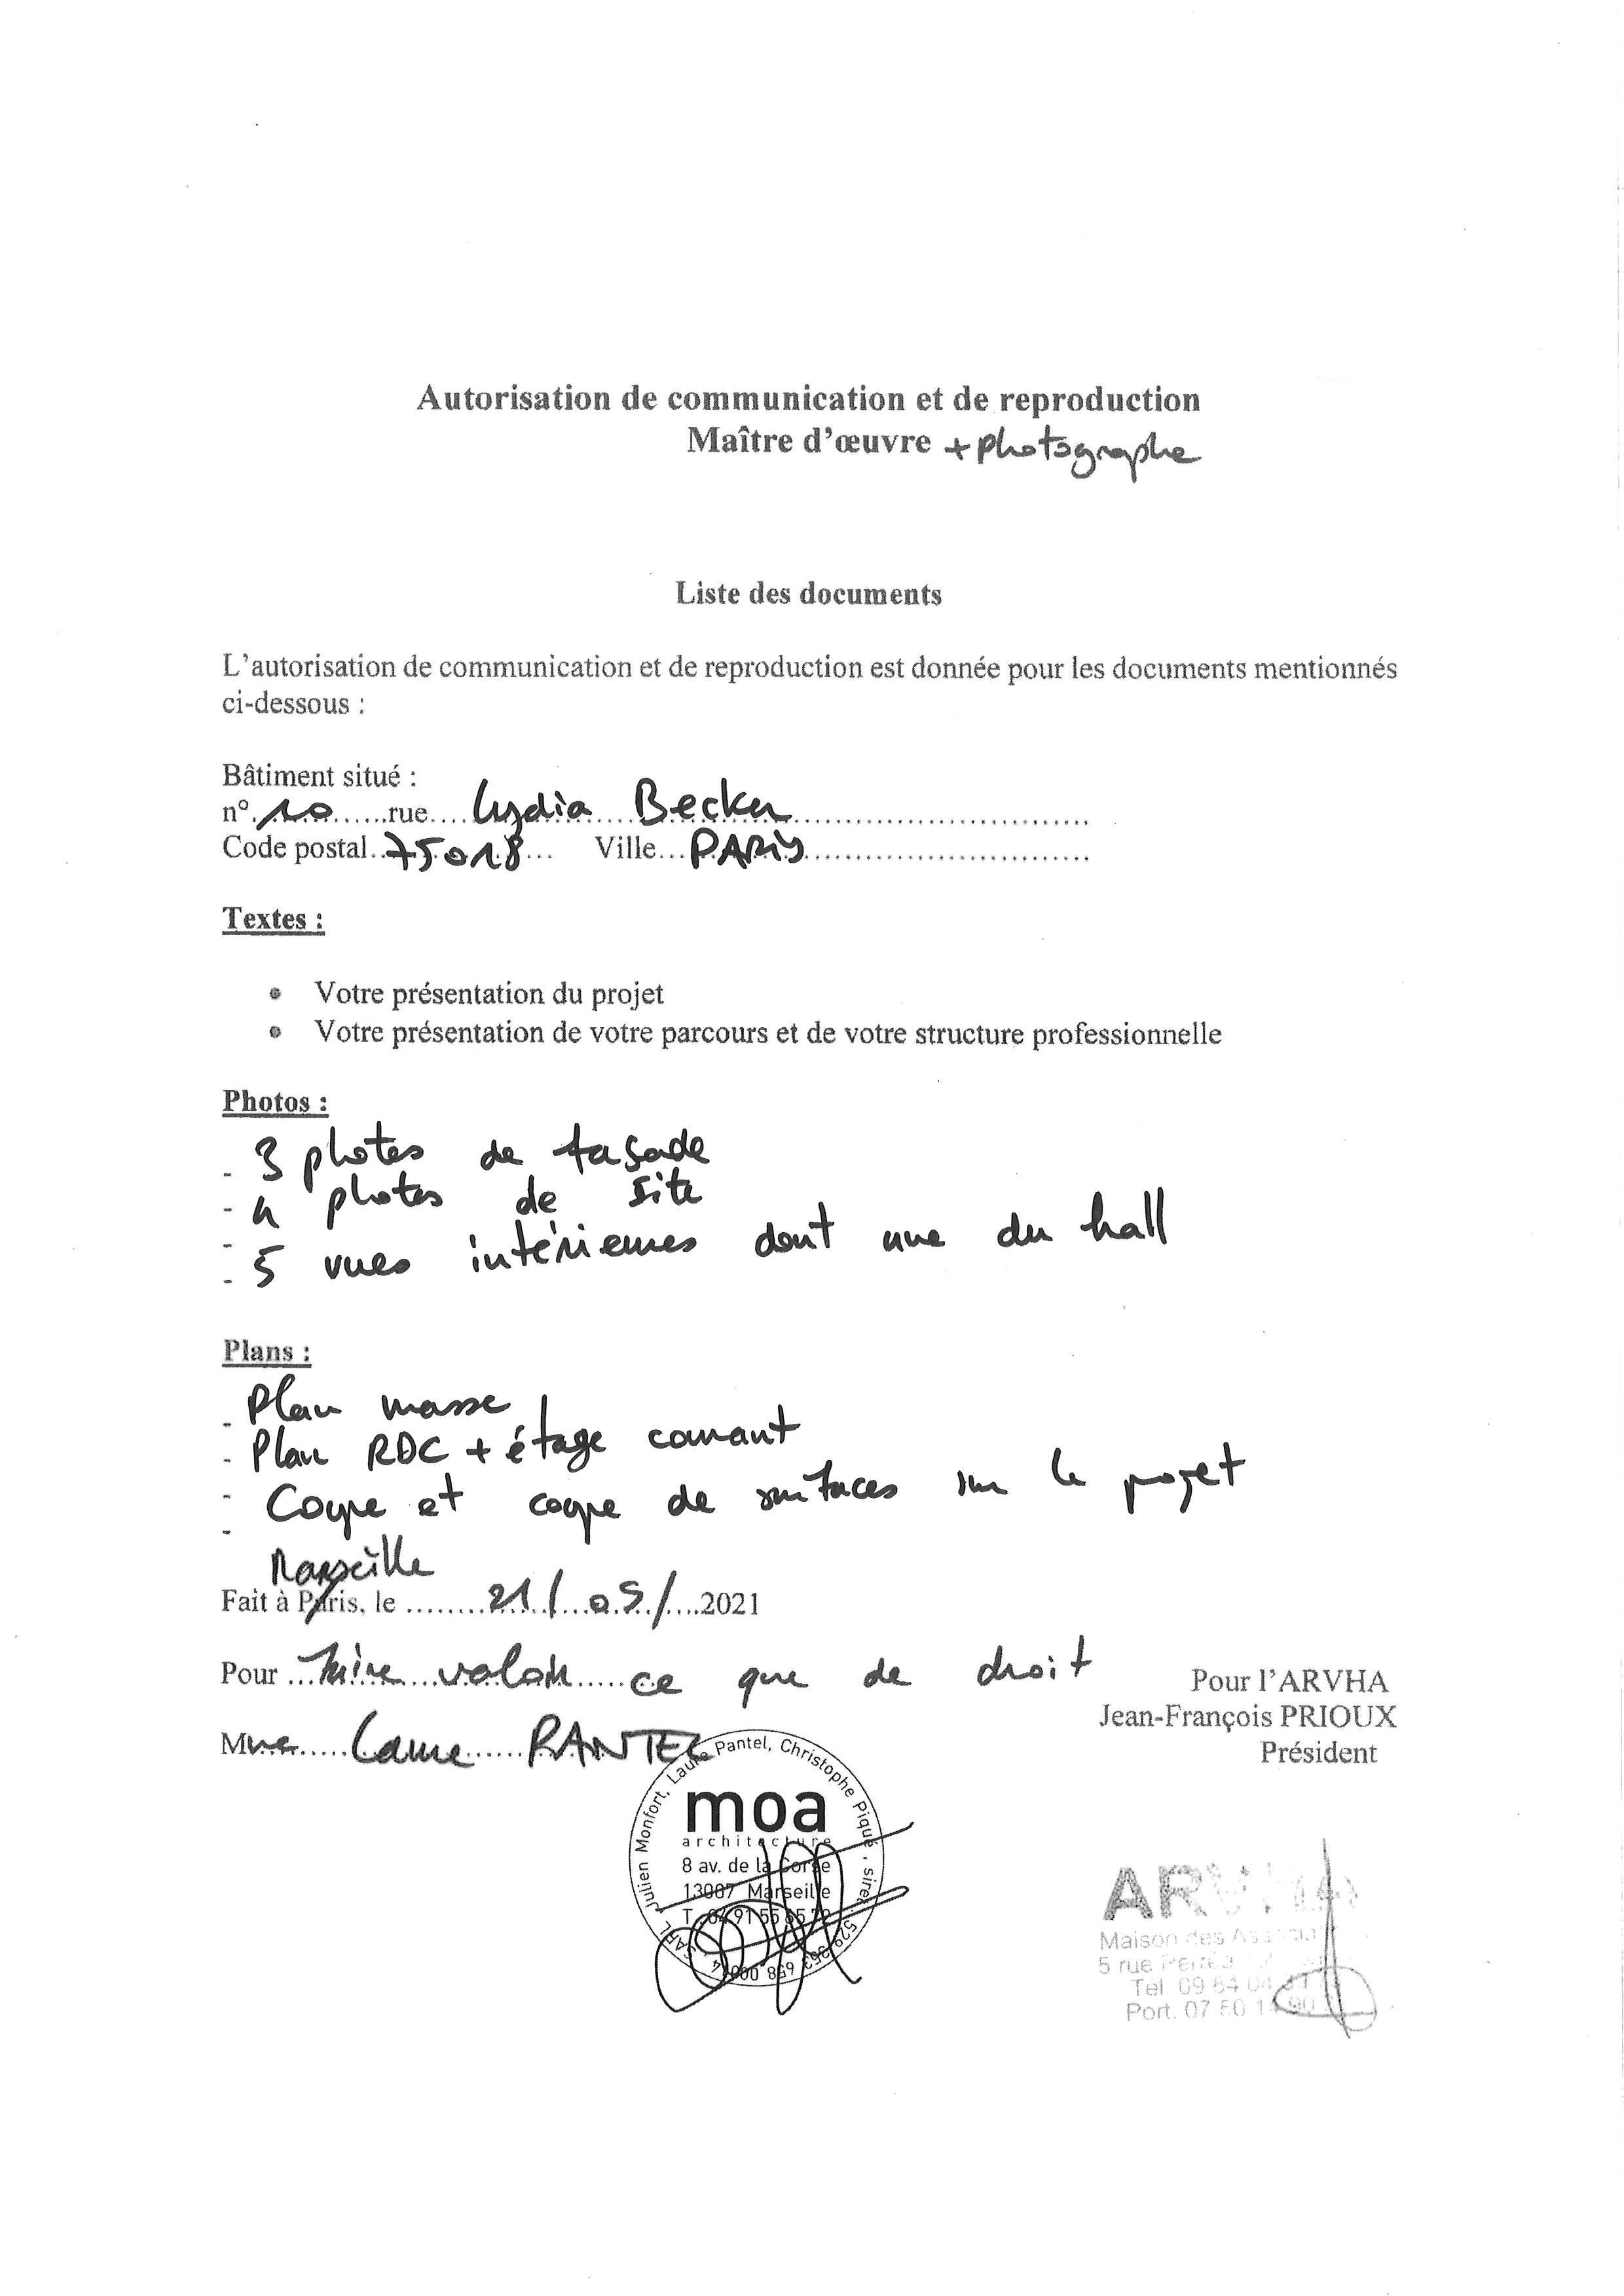 Autorisation de communication et de reproduction
Maître d'œuvre + photographe
Liste des documents
L'autorisation de communication et de reproduction est donnée pour les documents mentionnés
ci-dessous :
Bâtiment situé :
n°.10......rue....Lydia Becker......................
Code postal..75018... Ville...PARIS......................
Textes :
• Votre présentation du projet
• Votre présentation de votre parcours et de votre structure professionnelle
Photos :
- 3 photos de façade
- 4 photos de site
-
- 5 vues intérieures dont une du hall
Plans :
- Plan masse
- Plan RDC + étage courant
- Coupe et coupe de surfaces sur le projet
-
Marseille
Fait à Paris, le ........21/05/....2021
Pour ...faire valoir......ce que de droit
Pour l'ARVHA
Jean-François PRIOUX
Mme......Laure......PANTEL
Président
SARL Julien Monfort, Laure Pantel, Christophe Piqué, siret : 529 353 658 00014
moa
architecture
8 av. de la Corse
13007 Marseille
T. 04 91 55
ARVHA
Maison des
5 rue
Tel 09 64 04
Port. 07 50